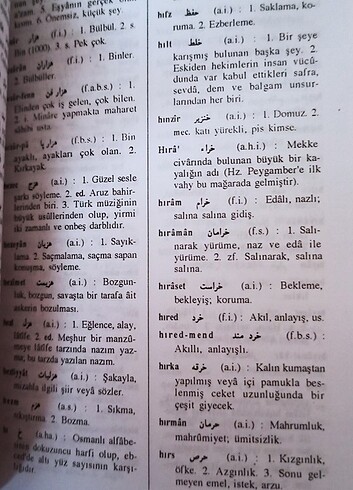 rum. 6. Önemsiz, küçük şey.
هزار (f.i.) : 1. Bülbül. 2. s.
Bin (1000). 3. s. Pek çok.
(f.i.) : 1. Binler.
2. Bülbüller.
(f.a.b.s.) : 1.
Elinden çok iş gelen, çok bilen.
2. i. Minâre yapmakta maharet
sâhibi usta.
(f.b.s.) : 1. Bin
ayaklı, ayakları çok olan. 2.
Kırkayak.
هزج (a.i.) : 1. Güzel sesle
şarkı söyleme. 2. ed. Aruz bahir-
lerinden biri. 3. Türk müziğinin
büyük usûllerinden olup, yirmi
iki zamanlı ve onbeş darblıdır.
هزيان (a.i.) : 1. Sayık-
lama. 2. Saçmalama, saçma sapan
konuşma, söyleme.
هزيمت (a.i.) : Bozgun-
luk, bozgun, savaşta bir tarafa âit
askerin bozulması.
هزل (a.i.) : 1. Eğlence, alay,
lâtîfe. 2. ed. Meşhur bir manzû-
meye lâtîfe tarzında nazım yaz-
me, bu tarzda yazılan nazım.
هزليات (a.i.) : Şakayla,
mizahla ilgili şiir veya sözler.
هزم (a.s.) : 1. Sıkma,
sıkıştırma. 2. Bozma.
(a.ha.) : Osmanlı alfâbe-
sinin dokuzuncu harfi olup, eb-
ced'de altı yüz sayısının karşı-
lığıdır.
hıfz حفظ (a.i.) : 1. Saklama, ko-
ruma. 2. Ezberleme.
hılt خلط (a.i.) : 1. Bir şeye
karışmış bulunan başka şey. 2.
Eskiden hekimlerin insan vücû-
dunda var kabul ettikleri safra,
sevdâ, dem ve balgam unsur-
larından her biri.
hınzîr خنزير (a.i.) : 1. Domuz. 2.
mec. katı yürekli, pis kimse.
Hırâ' حراء (a.h.i.) : Mekke
civârında bulunan büyük bir ka-
yalığın adı (Hz. Peygamber'e ilk
vahy bu mağarada gelmiştir).
hırâm خرام (f.i.) : Edâlı, nazlı;
salına salına gidiş.
hırâmân خرامان (f.s.) : 1. Salı-
narak yürüme, naz ve edâ ile
yürüme. 2. zf. Salınarak, salına
salına.
hırâset حراست (a.i.) : Bekleme,
bekleyiş; koruma.
hıred خرد (f.i.) : Akıl, anlayış, us.
hıred-mend خرد مند (f.b.s.) :
Akıllı, anlayışlı.
hırka خرقه (a.i.) : Kalın kumaştan
yapılmış veyâ içi pamukla bes-
lenmiş ceket uzunluğunda bir
çeşit giyecek.
hırmân حرمان (a.i.) : Mahrumluk,
mahrûmiyet; ümitsizlik.
hırs حرص (a.i.) : 1. Kızgınlık,
öfke. 2. Azgınlık. 3. Sonu gel-
meyen emel, istek, arzu.